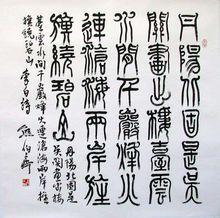 丹陽北固是吳
關畫出樓臺雲
水間千巖烽火
連滄海兩岸旌
旗繞碧山
丹陽北固是
吳關畫出樓
臺雲水間千巖烽火連滄海兩岸旌
旗繞碧山 李白詩 熊伯齊